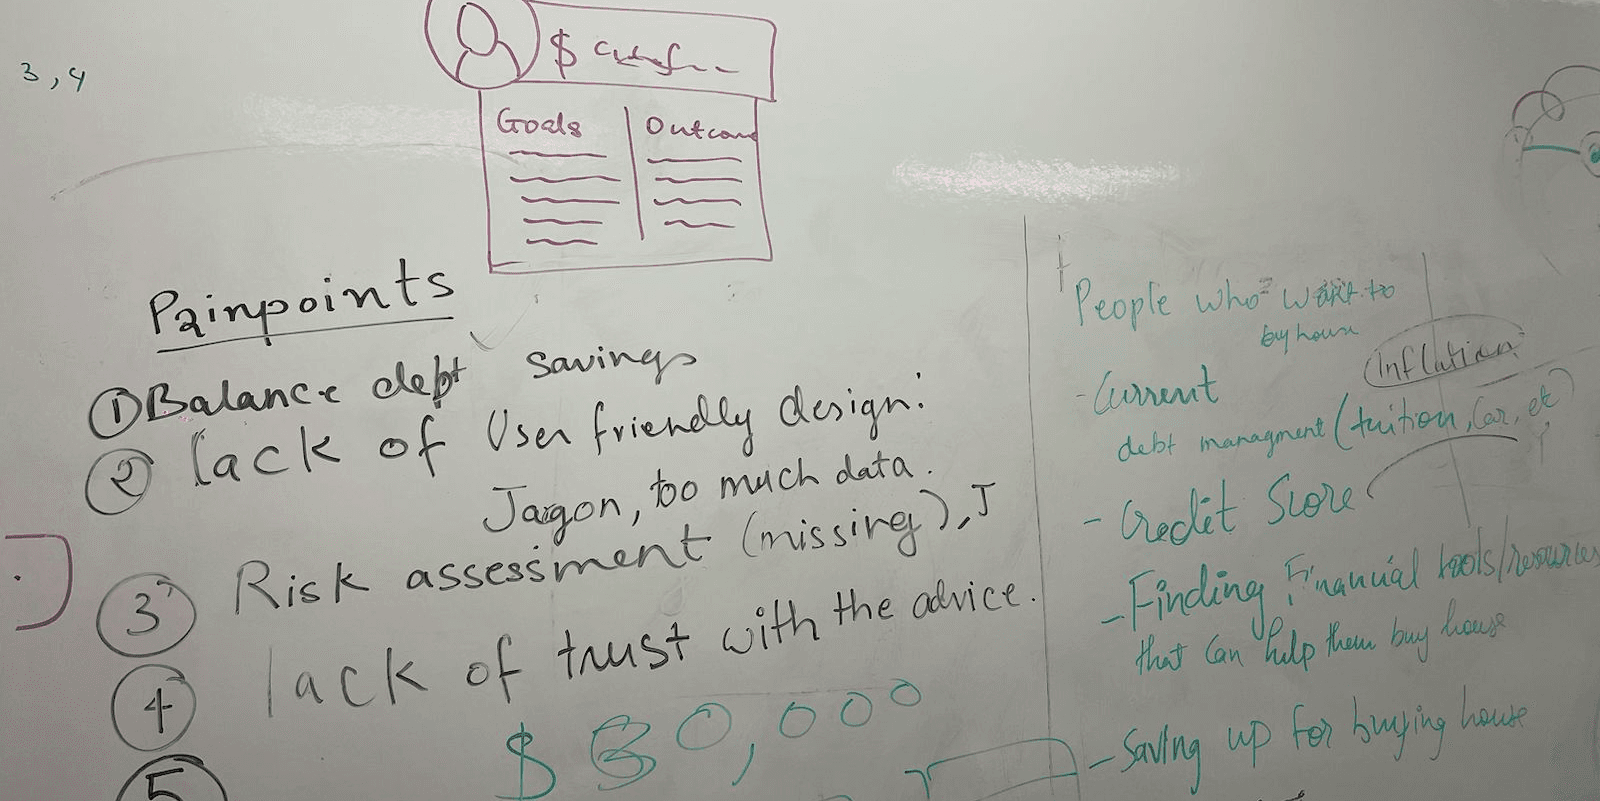 3, 4
$
Goals
Outcome
Painpoints
① Balance debt savings
② lack of User friendly design:
Jagon, too much data.
③ Risk assessment (missing), J
④ lack of trust with the advice.
5
$ 30,000
People who want to
buy house
Inflation
- Current
debt managment (tuition, Car, etc)
- Credit Score
- Finding Financial tools/resources
that can help them buy house
- Saving up for buying house